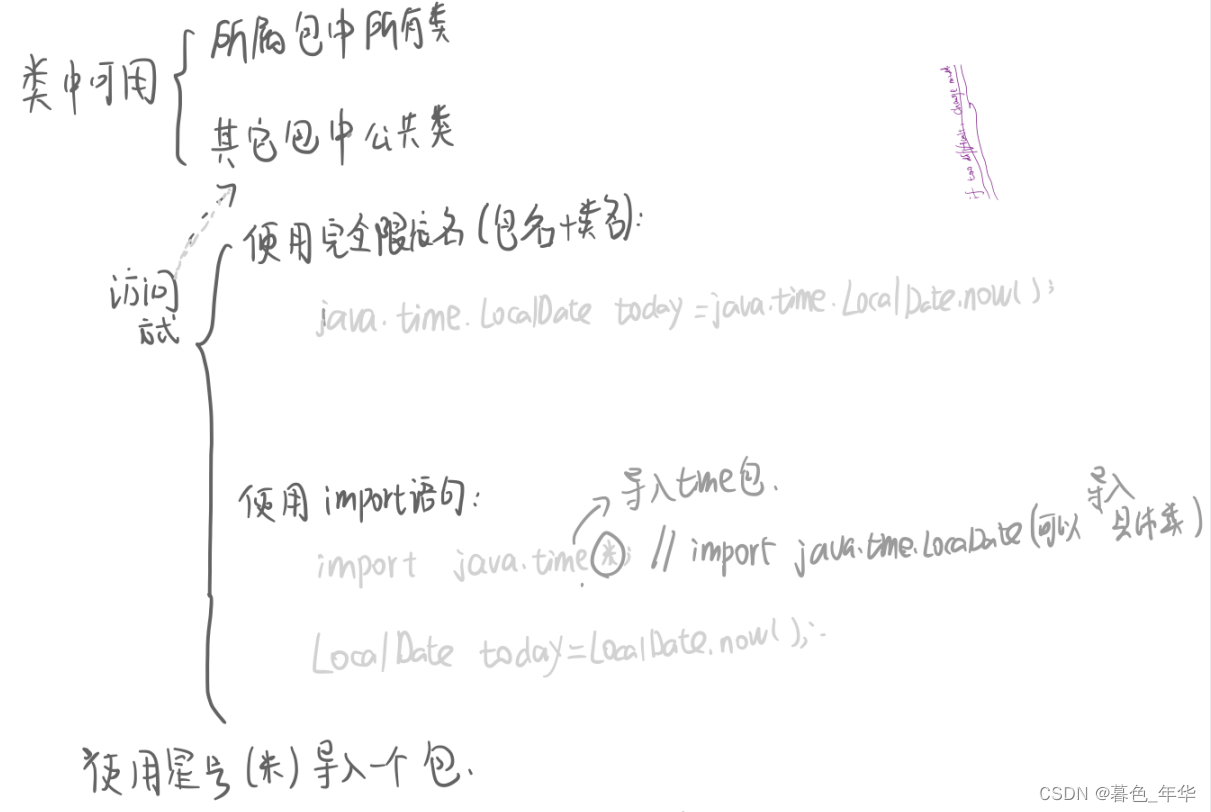 类中可用
所属包中所有类
其它包中公共类
访问
方式
使用完全限定名(包名+类名):
java.time.LocalDate today=java.time.LocalDate.now();
使用import语句:
导入time包.
import java.time.*;
// import java.time.LocalDate(可以导入具体类)
LocalDate today=LocalDate.now();
*使用星号(*)导入一个包.
if too difficult, change
CSDN @暮色_年华